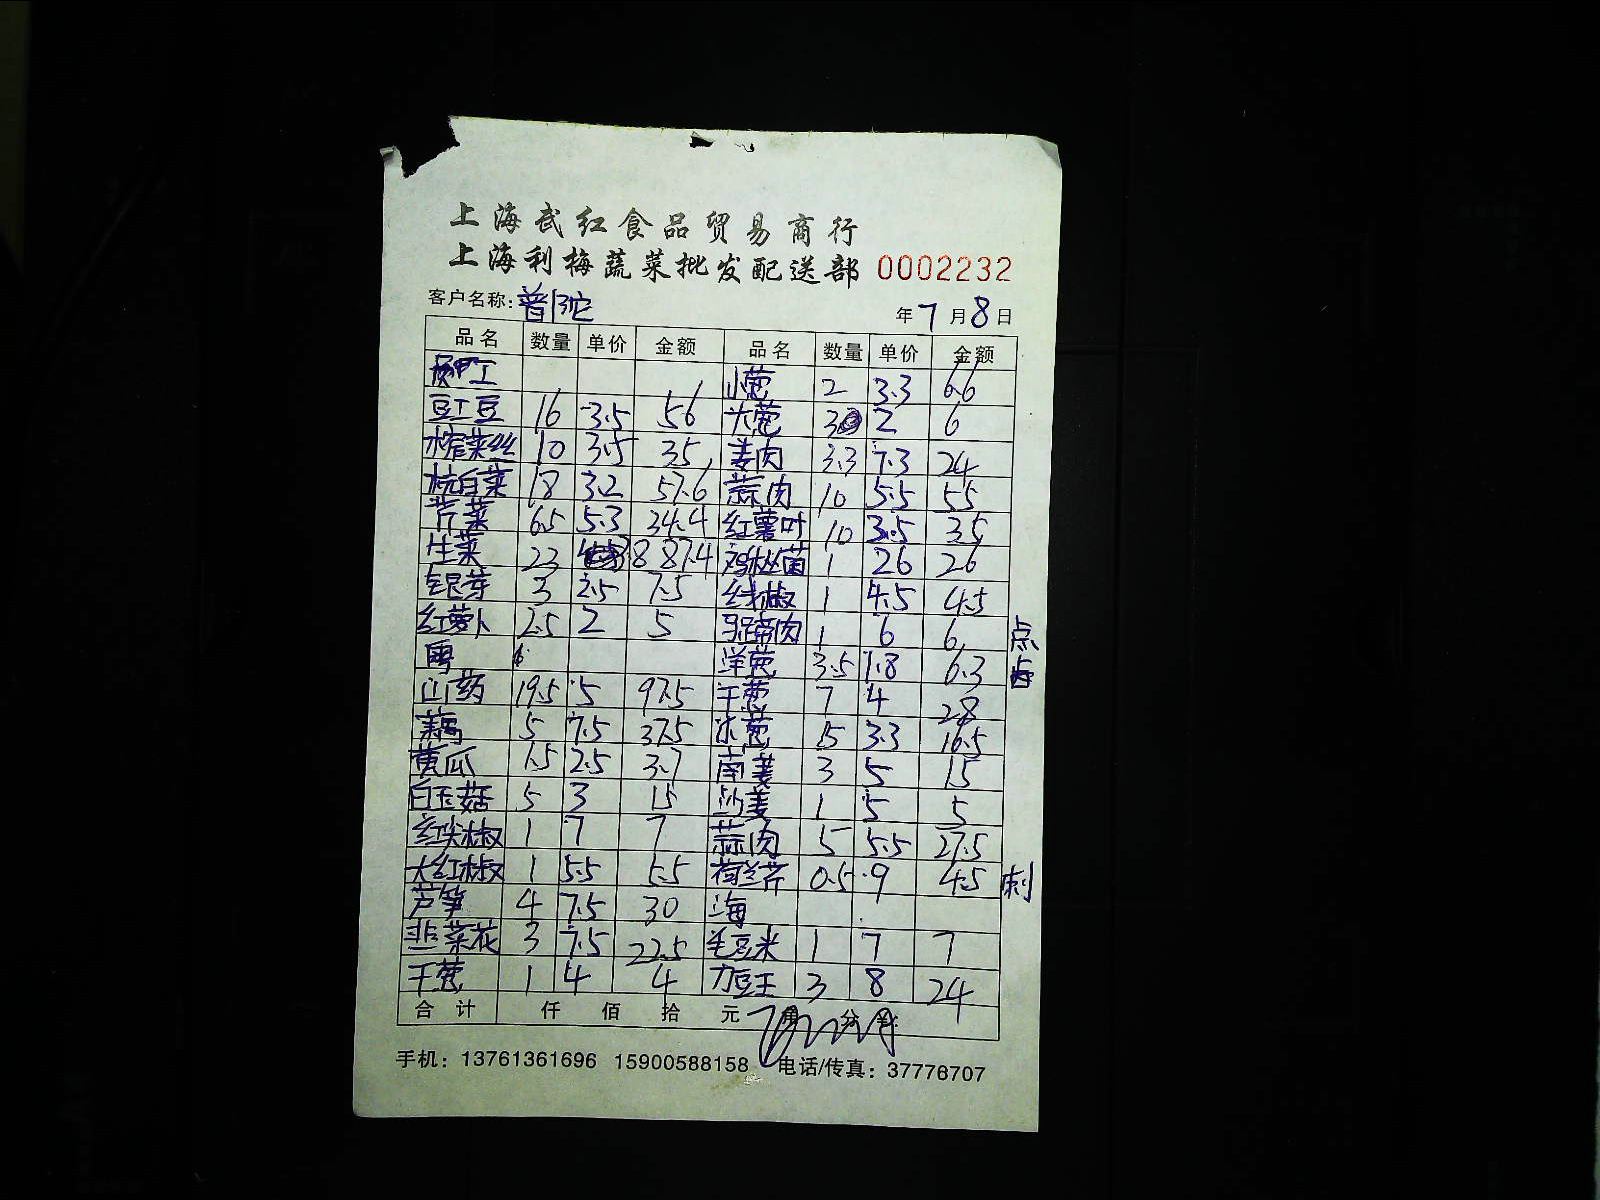 上海武红食品贸易商行
上海利梅蔬菜批发配送部 0002232
客户名称：普陀 年7月8日
品名 数量 单价 金额 品名 数量 单价 金额
工 小葱 2 3.3 6.6
豇豆 16 3.5 56 大葱 3 2 6
榨菜丝 10 3.5 35 姜肉 3.3 7.3 24
杭白菜 18 3.2 57.6 蒜肉 10 5.5 55
芹菜 6.5 5.3 34.4 红薯叶 10 3.5 35
生菜 23 87.4 鸡枞菌 1 26 26
银芽 3 2.5 7.5 线椒 1 4.5 4.5
红萝卜 2.5 2 5 马蹄肉 1 6 6 点
粤 洋葱 3.5 1.8 6.3
山药 19.5 5 97.5 干葱 7 4 28
藕 5 7.5 37.5 京葱 5 3.3 16.5
黄瓜 1.5 2.5 3.7 南姜 3 5 15
白玉菇 5 3 15 沙姜 1 5 5
红尖椒 1 7 7 蒜肉 5 5.5 27.5
大红椒 1 5.5 5.5 荷兰芹 0.5 9 4.5 刺
芦笋 4 7.5 30 海
韭菜花 3 7.5 22.5 毛豆米 1 7 7
干葱 1 4 4 刀豆王 3 8 24
合计 仟 佰 拾 元 角 分
手机：13761361696 15900588158 电话/传真：37776707